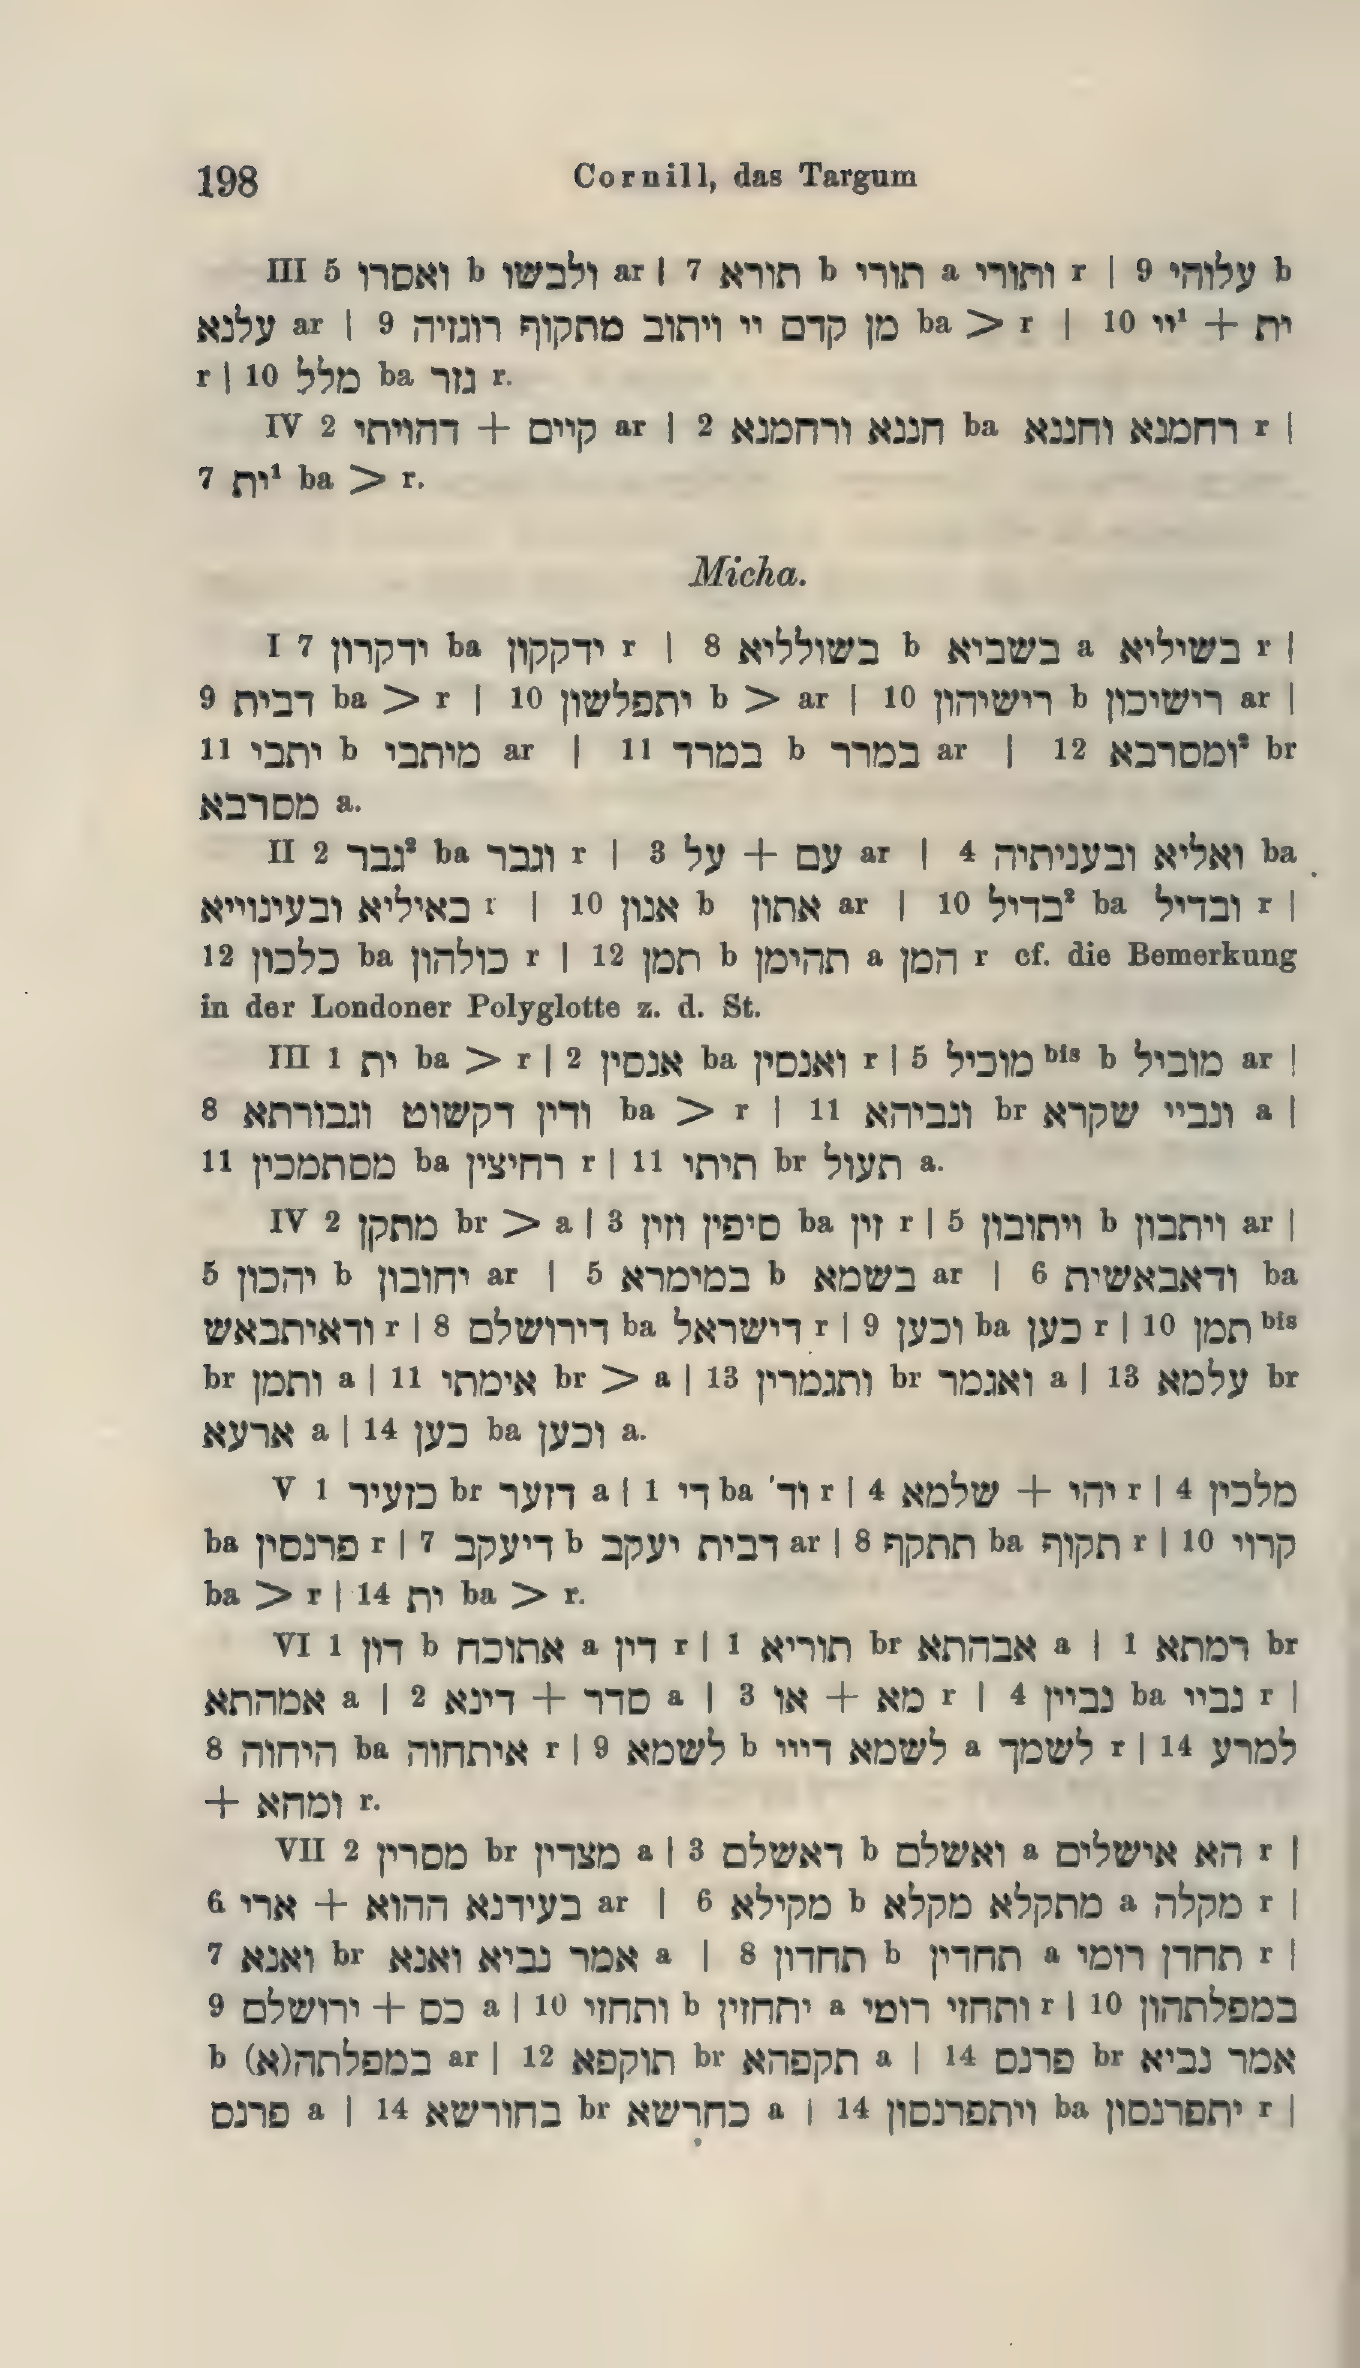 198 Cornill, das Targum
III 5 ואסרו b ולבשו ar | 7 תורא b תורי a ותורי r | 9 עלוהי b
עלנא ar | 9 מן קדם יי ויתוב מתקוף רוגזיה ba > r | 10 יי¹ + ית
r | 10 מלל ba גזר r.
IV 2 קיים + דהויתי ar | 2 חננא ורחמנא ba רחמנא וחננא r |
7 ית¹ ba > r.
Micha.
I 7 ידקרון ba ידקקון r | 8 בשולליא b בשביא a בשיליא r |
9 דבית ba > r | 10 יתפלשון b > ar | 10 רישיהון b רישיכון ar |
11 יתבי b מיתבי ar | 11 במרד b במרר ar | 12 ומסרבא² br
מסרבא a.
II 2 גבר² ba וגבר r | 3 עם + על ar | 4 ואליא ובעניתיה ba
באיליא ובעינוייא r | 10 אנון b אתון ar | 10 בדיל² ba ובדיל r |
12 כלכון ba כולהון r | 12 תמן b תהימן a המן r cf. die Bemerkung
in der Londoner Polyglotte z. d. St.
III 1 ית ba > r | 2 אנסין ba ואנסין r | 5 מוביל bis b מוביל ar |
8 ודין דקשוט וגבורתא ba > r | 11 ונביהא br ונביי שקרא a |
11 מסתמכין ba רחיצין r | 11 תיתי br תעול a.
IV 2 מתקן br > a | 3 סיפין וזין ba זין r | 5 ויתובון b ויתבון ar |
5 יהכון b יחובון ar | 5 במימרא b בשמא ar | 6 ודאבאשית ba
ודאיתבאש r | 8 דירושלם ba דישראל r | 9 וכען ba כען r | 10 תמן bis
br ותמן a | 11 אימתי br > a | 13 ותגמרין br ואגמר a | 13 עלמא br
ארעא a | 14 כען ba וכען a.
V 1 כזעיר br דזער a | 1 די ba וד' r | 4 שלמא + יהי r | 4 מלכין
ba פרנסין r | 7 דיעקב b דבית יעקב ar | 8 תתקף ba תקוף r | 10 קרוי
ba > r | 14 ית ba > r.
VI 1 דון b אתוכח a דין r | 1 תוריא br אבהתא a | 1 רמתא br
אמהתא a | 2 סדר + דינא a | 3 מא + או r | 4 נביין ba נביי r |
8 היחוה ba איתחוה r | 9 לשמא b לשמא דייי a לשמך r | 14 למרע
+ ומהא r.
VII 2 מסרין br מצדין a | 3 דאשלם b ואשלם a הא אישלים r |
6 בעידנא ההוא + ארי ar | 6 מקילא b מתקלא מקלא a מקלה r |
7 ואנא br אמר נביא ואנא a | 8 תחדון b תחדין a תחדן רומי r |
9 כס + ירושלם a | 10 ותחזי b יתחזין a ותחזי רומי r | 10 במפלתהון
b במפלתה(א) ar | 12 תוקפא br תקפהא a | 14 פרנס br אמר נביא
פרנס a | 14 בחורשא br כחרשא a | 14 ויתפרנסון ba יתפרנסון r |